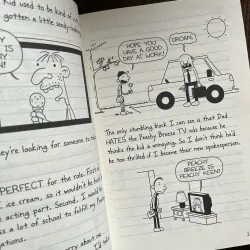 Kid used to be kind of
gotten a little seedy-
IS
MY
they're looking for someone to
PERFECT for the role. First
ice cream, so it wouldn't be
acting part. Second, I
ss a lot of school to fulfill my
ations.
worry about me
HOPE YOU
HAVE A GOOD
DAY AT WORK!
GROAN!
The only stumbling block I can see is that Dad
HATES the Peachy Breeze TV ads because he
thinks the kid is annoying. So I don't think he'd
be too thrilled if I became their new spokesperson.
PEACHY
BREEZE IS
PEACHY KEEN!